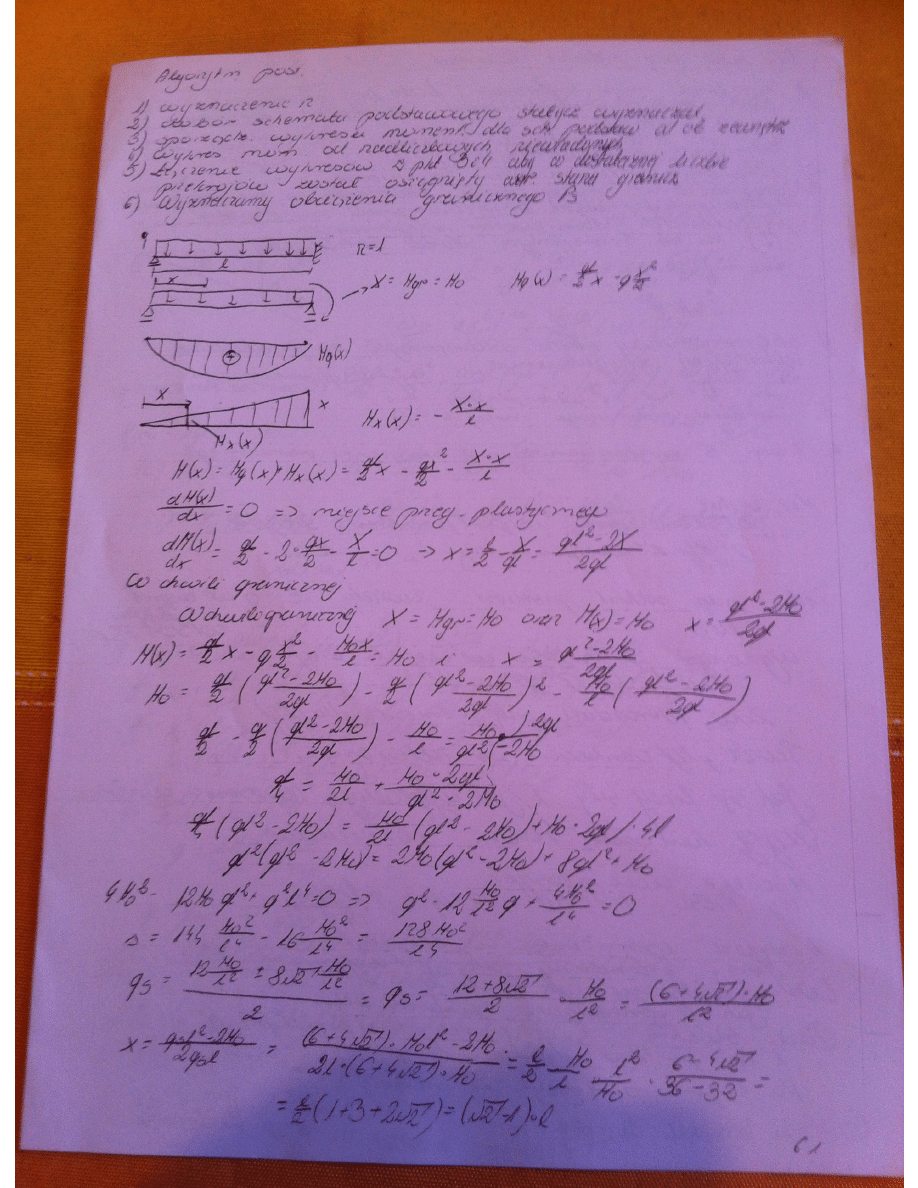 Algorytm post.
1) wyznaczenie n
2) dobór schematu podstawowego statycz. wyznaczal
3) sporządz. wykresu moment. dla sch podstaw od ob zewnętrz
4) wykres mom od nadliczbowych niewiadomych
5) Łączenie wykresów z pkt 3 i 4 aby w dostatecznej liczbie
przekrojów został osiągnięty stan graniczn
6) Wyznaczamy obciążenia granicznego
q
l
n=1
x
X = Mgr = M₀ Mq(x) = ql/2 x - q x²/2
+ Mq(x)
x x
Mx(x) = - X·x/l
Mx(x)
M(x) = Mq(x)+Mx(x) = ql/2 x - qx²/2 - X·x/l
dM(x)/dx = 0 => miejsce przeg. plastycznego
dM(x)/dx = ql/2 - 2·qx/2 - X/l = 0 → x = l/2 - X/ql = ql²-2X/2ql
W chwili granicznej
W chwili granicznej X = Mgr = M₀ oraz M(x) = M₀ x = ql²-2M₀/2ql
M(x) = ql/2 x - q x²/2 - M₀x/l = M₀ i x = ql²-2M₀/2ql
M₀ = ql/2 (ql²-2M₀/2ql) - q/2 (ql²-2M₀/2ql)² - M₀/l (ql²-2M₀/2ql)
ql/2 - q/2 (ql²-2M₀/2ql) - M₀/l = M₀·2ql/ql²-2M₀
ql/4 = M₀/2l + M₀·2ql/ql²-2M₀
ql/4 (ql²-2M₀) = M₀/2l (ql²-2M₀) + M₀·2ql /·4l
ql²(ql²-2M₀) = 2M₀(ql²-2M₀) + 8ql²+M₀
4M₀² - 12M₀ql² + q²l⁴ = 0 => q² - 12 M₀/l² q + 4M₀²/l⁴ = 0
Δ = 144 M₀²/l⁴ - 16 M₀²/l⁴ = 128M₀²/l⁴
qs = 12 M₀/l² ± 8√2 M₀/l² / 2 = qs = 12+8√2/2 · M₀/l² = (6+4√2)·M₀/l²
x = qsl²-2M₀/2qsl = (6+4√2)·M₀l²-2M₀/2l·(6+4√2)·M₀ = l/2 - M₀/l · l²/M₀ · 6-4√2/36-32 =
= l/2 (1+3+2√2) = (√2-1)·l
61